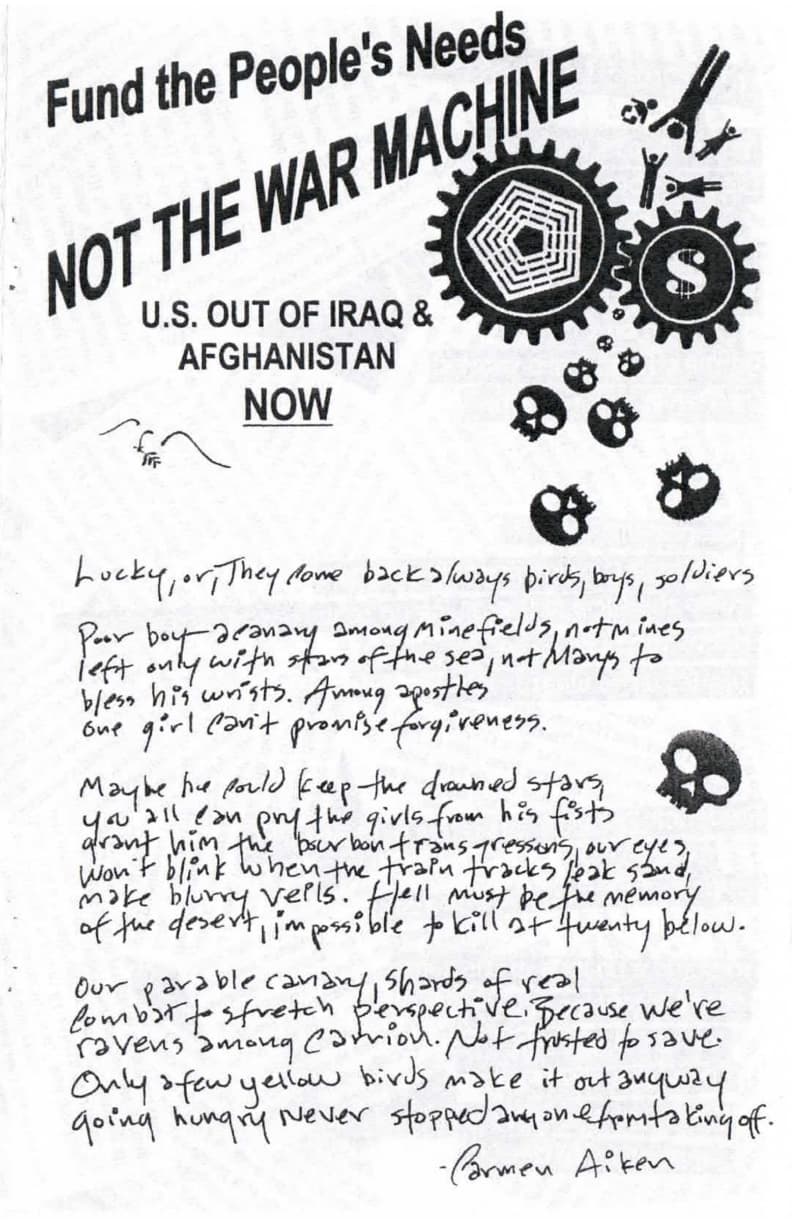 Fund the People's Needs
NOT THE WAR MACHINE
U.S. OUT OF IRAQ &
AFGHANISTAN
NOW
$
Lucky, or, They come back always birds, boys, soldiers
Poor boy—a canary among minefields, not mines
left only with stars of the sea, not Marys to
bless his wrists. Among apostles
one girl can't promise forgiveness.
Maybe he could keep the drowned stars,
you'all can pry the girls from his fists
grant him the bourbon transgressions, our eyes
won't blink when the train tracks leak sand,
make blurry veils. Hell must be the memory
of the desert, impossible to kill at twenty below.
Our parable canary, shards of real
combat to stretch perspective. Because we're
ravens among carrion. Not trusted to save.
Only a few yellow birds make it out anyway
going hungry never stopped anyone from taking off.
-Carmen Aiken